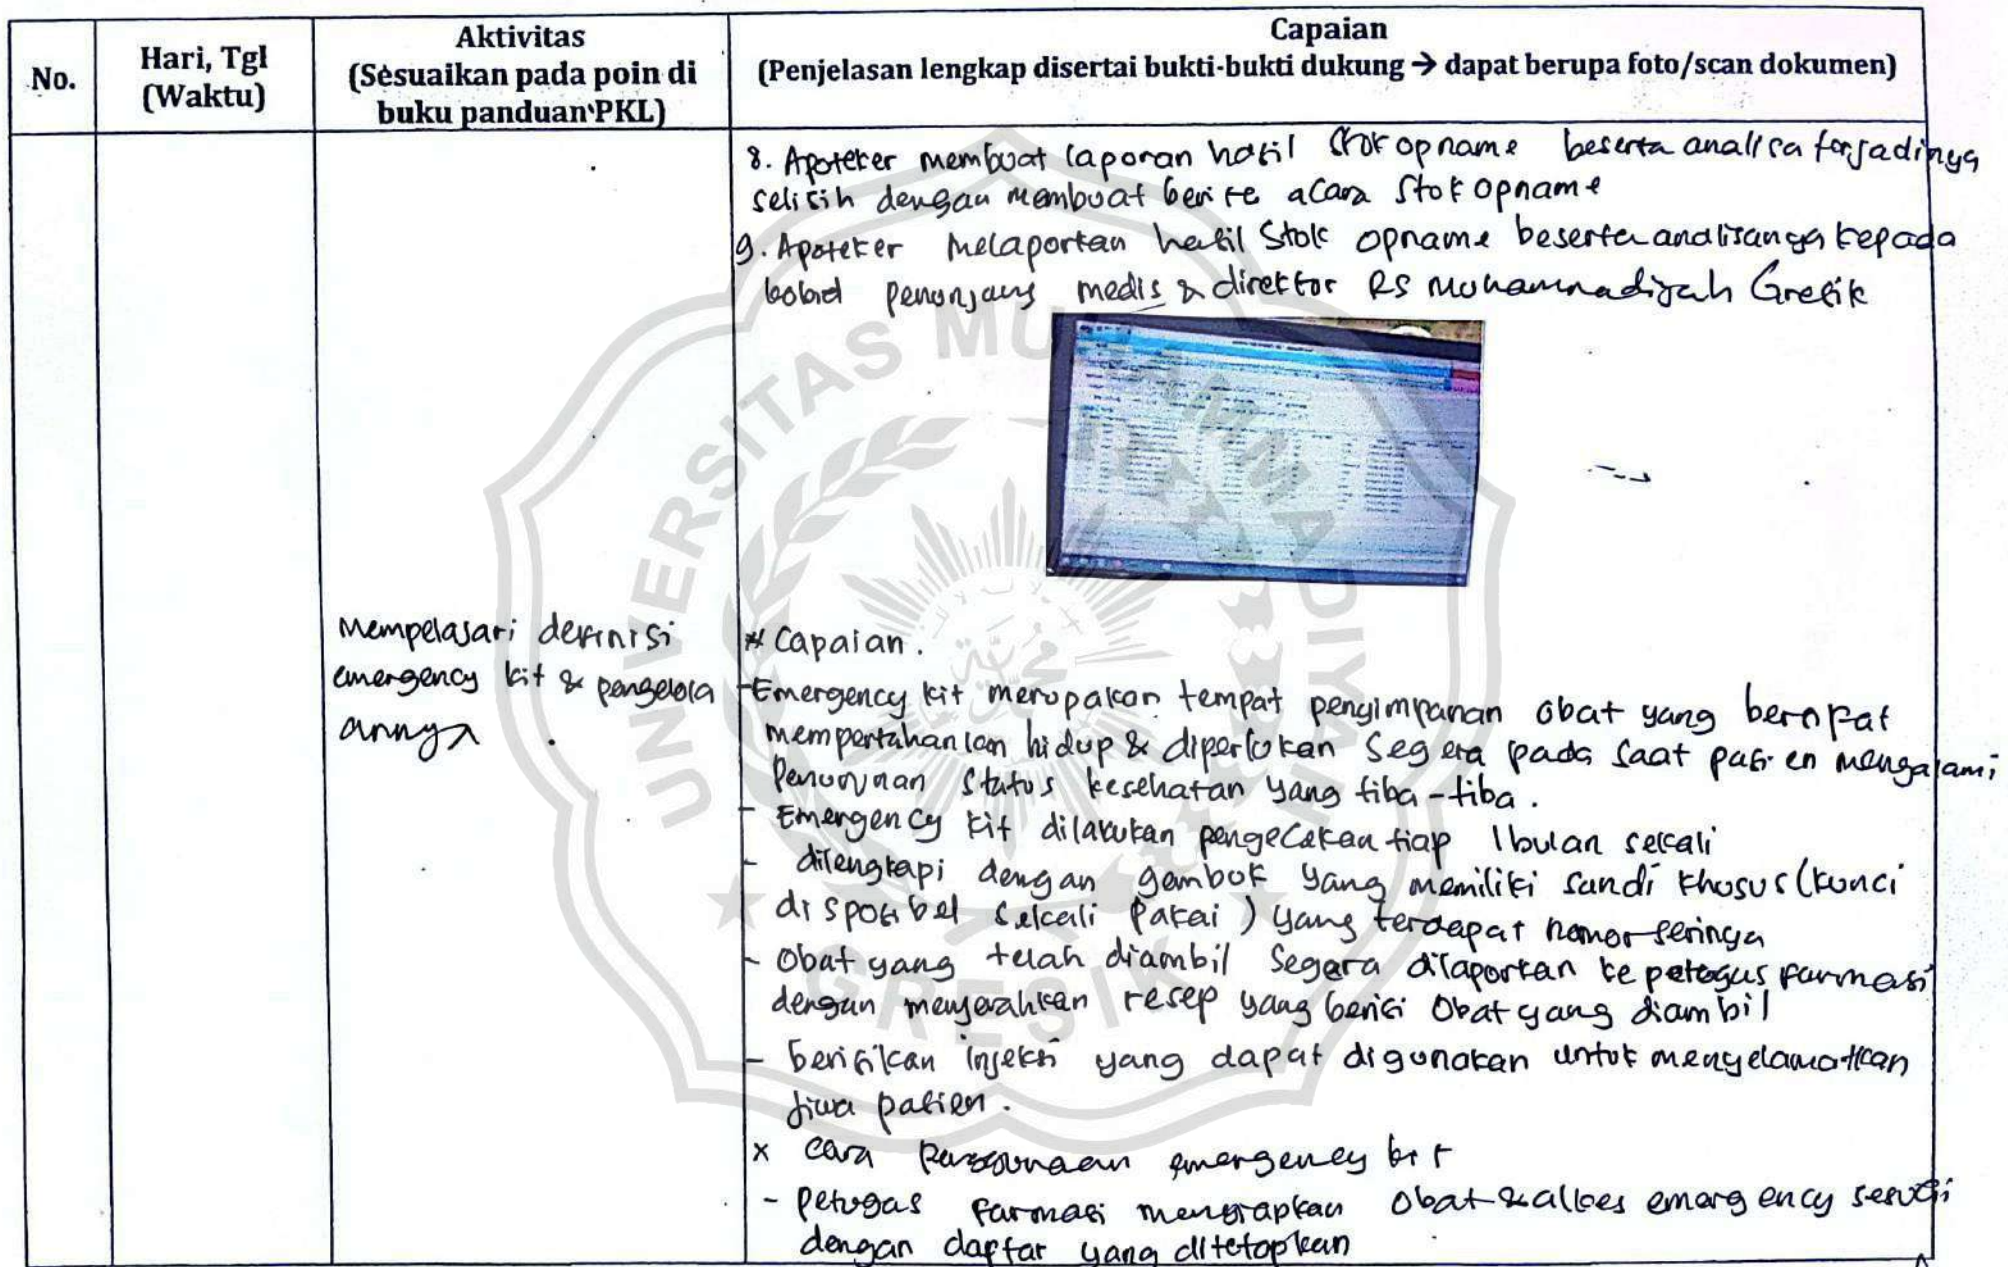 No.
Hari, Tgl
(Waktu)
Aktivitas
(Sesuaikan pada poin di
buku panduan PKL)
Capaian
(Penjelasan lengkap disertai bukti-bukti dukung → dapat berupa foto/scan dokumen)
8. Apoteker membuat laporan hasil stok opname beserta analisa terjadinya
selisih dengan membuat berita acara stok opname
9. Apoteker melaporkan hasil stok opname beserta analisanya kepada
penunjang medis & direktor RS Muhammadiyah Gresik
Mempelajari definisi
emergency kit & pengelola
annya
* Capaian.
- Emergency kit merupakan tempat penyimpanan obat yang bersifat
mempertahankan hidup & diperlukan segera pada saat pasien mengalami
Penurunan status kesehatan yang tiba-tiba.
- Emergency kit dilakukan pengecekan tiap 1 bulan sekali
- dilengkapi dengan gembok yang memiliki sandi khusus (kunci
disposibel sekali pakai) yang terdapat nomor seringa
- Obat yang telah diambil segera dilaporkan ke petugas farmasi
dengan menyerahkan resep yang berisi obat yang diambil
- berisikan injeksi yang dapat digunakan untuk menyelamatkan
jiwa pasien.
x cara penggunaan emergency kit
- Petugas farmasi menyiapkan obat & alkes emergency sesuai
dengan daftar yang ditetapkan
UNIVERSITAS MUHAMMADIYAH
GRESIK